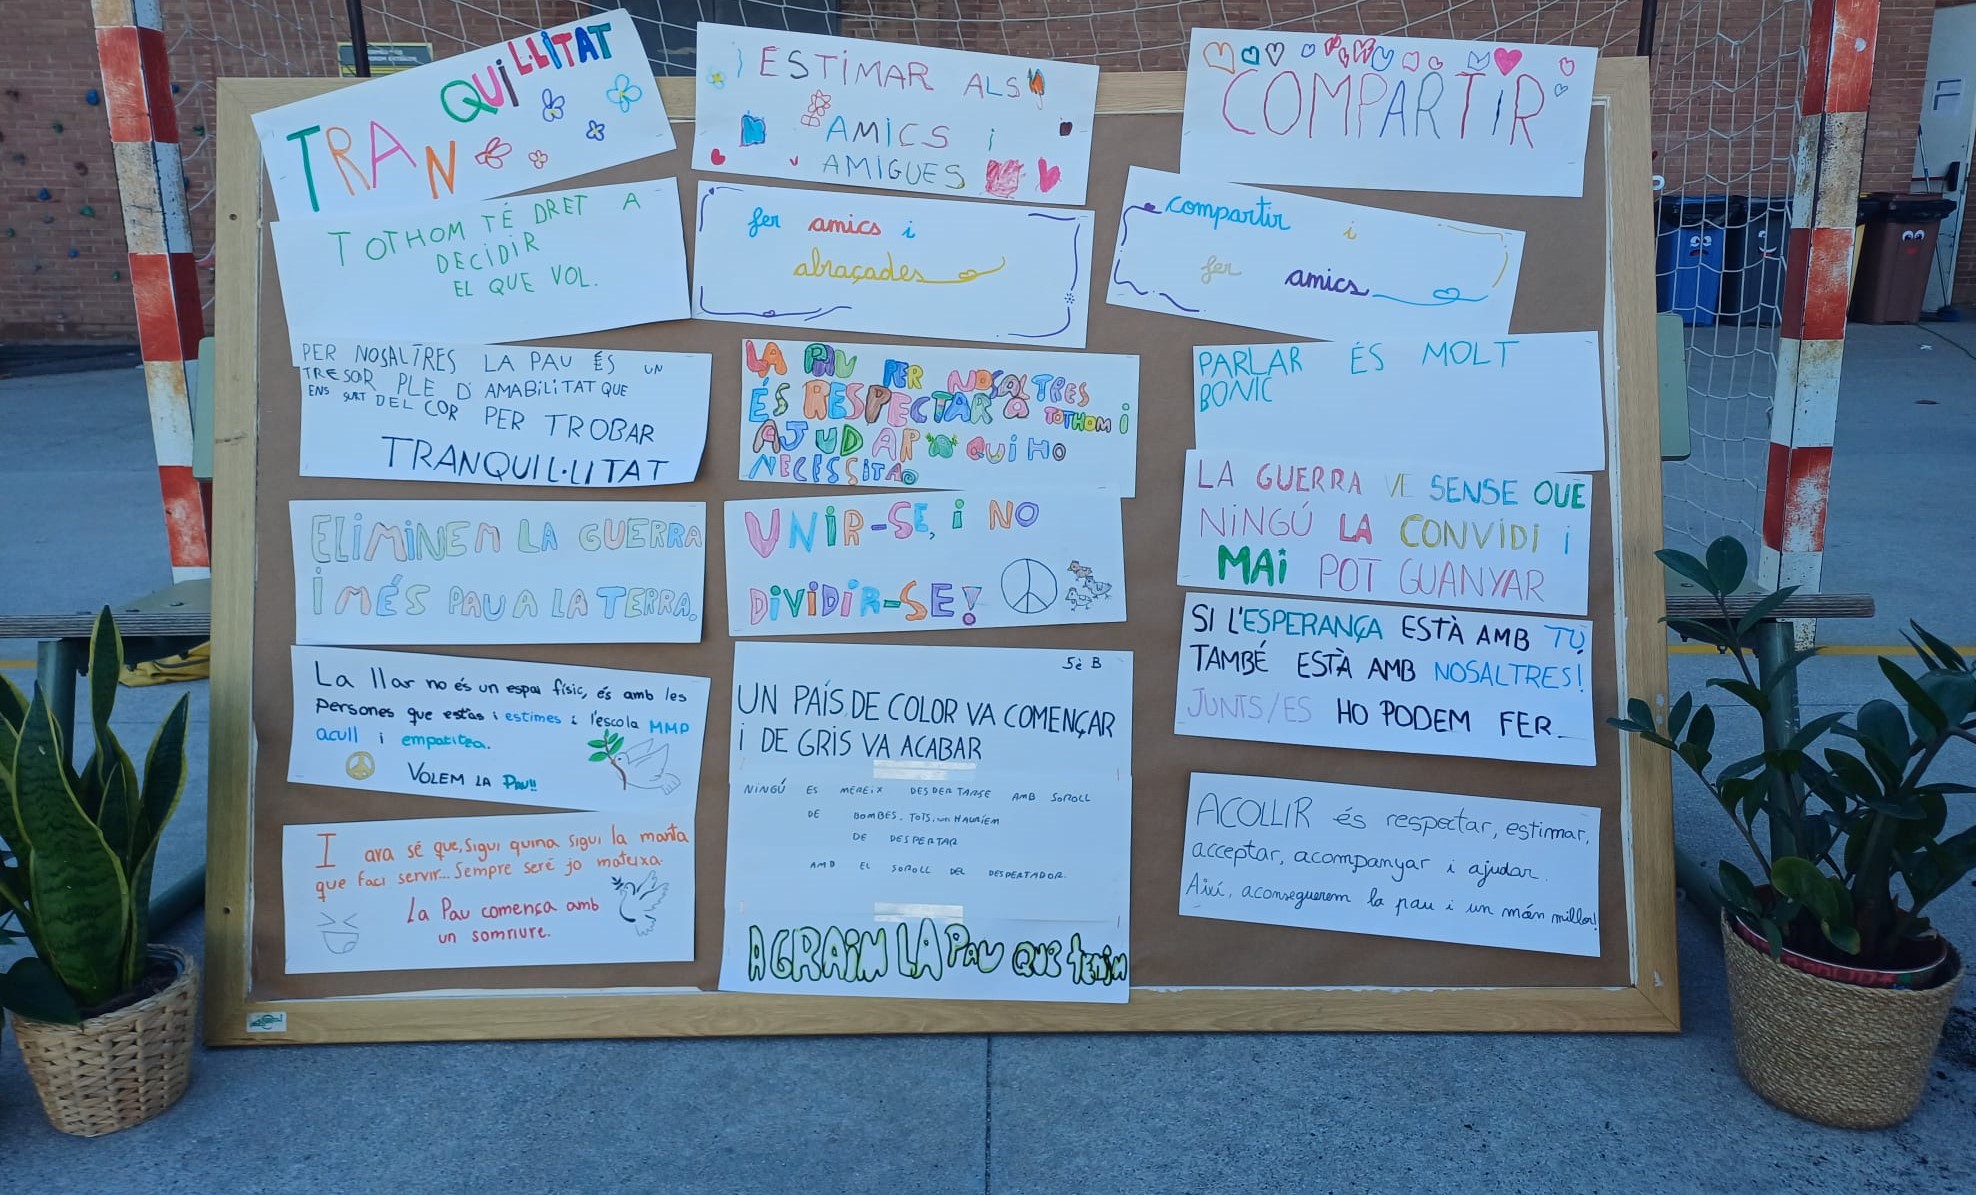 TRANQUIL·LITAT
TOTHOM TÉ DRET A
DECIDIR
EL QUE VOL.
PER NOSALTRES LA PAU ÉS UN
TRESOR PLE D'AMABILITAT QUE
ENS SURT DEL COR PER TROBAR
TRANQUIL·LITAT
ELIMINEM LA GUERRA
I MÉS PAU A LA TERRA.
La llar no és un espai físic, és amb les
persones que estàs i estimes i l'escola MMP
acull i empatitza.
VOLEM LA PAU!!
I ara sé que, sigui quina sigui la manta
que faci servir... Sempre seré jo mateixa.
La Pau comença amb
un somriure.
ESTIMAR ALS
AMICS i
AMIGUES
fer amics i
abraçades
LA PAU PER NOSALTRES
ÉS RESPECTAR A TOTHOM i
AJUDAR A QUI HO
NECESSITA
UNIR-SE, i NO
DIVIDIR-SE!
5è B
UN PAÍS DE COLOR VA COMENÇAR
i DE GRIS VA ACABAR
NINGÚ ES MEREIX DESPERTARSE AMB SOROLL
DE BOMBES. TOTS, UN HAURIEM
DE DESPERTAR
AMB EL SOROLL DEL DESPERTADOR.
AGRAIM LA PAU QUE tENIM
COMPARTIR
compartir i
fer amics
PARLAR ÉS MOLT
BONIC
LA GUERRA VE SENSE QUE
NINGÚ LA CONVIDI i
MAI POT GUANYAR
SI L'ESPERANÇA ESTÀ AMB TU,
TAMBÉ ESTÀ AMB NOSALTRES!
JUNTS/ES HO PODEM FER
ACOLLIR és respectar, estimar,
acceptar, acompanyar i ajudar.
Així, aconseguirem la pau i un món millor!